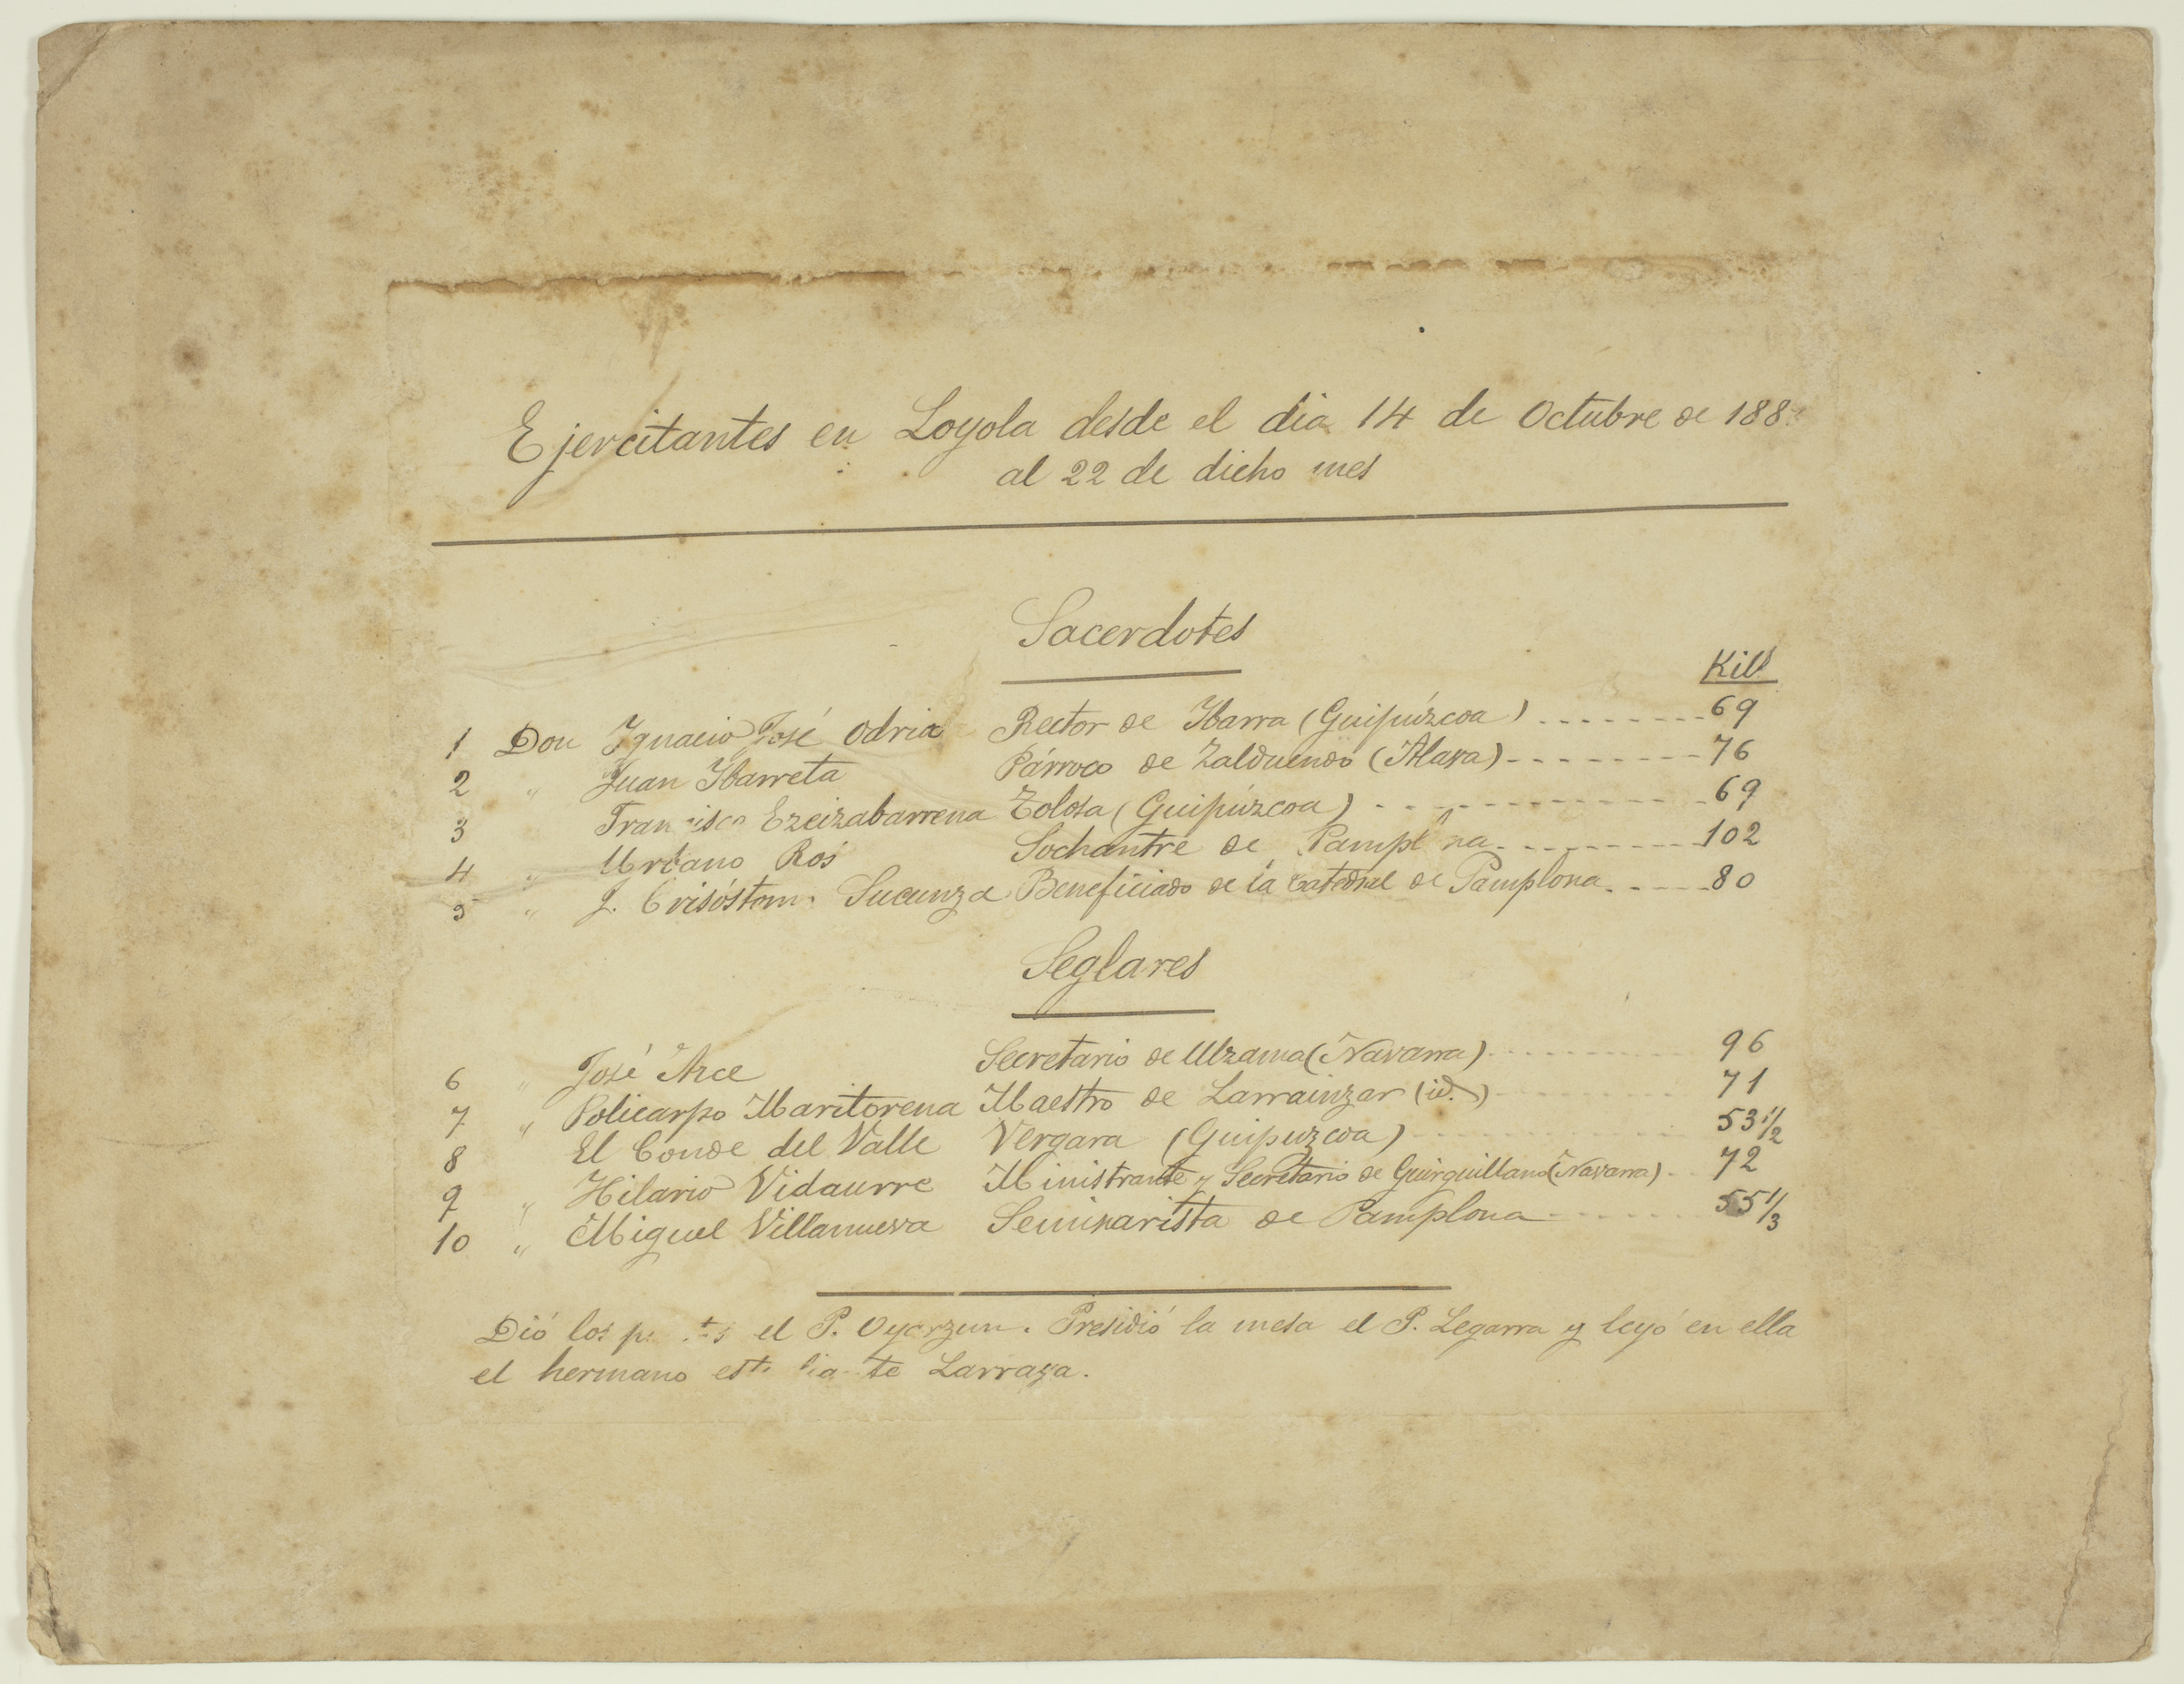 Ejercitantes en Loyola desde el dia 14 de Octubre de 188
al 22 de dicho mes
Sacerdotes
Kils
1 Don Ignacio José Odria Rector de Ibarra (Guipúzcoa) 69
2 " Juan Ibarreta Párroco de Zalduendo (Alava) 76
3 Francisco Ezeizabarrena Tolosa (Guipúzcoa) 69
4 " Urbano Ros Sochantre de Pamplona 102
5 " J. Crisóstomo Sucunza Beneficiado de la Catedral de Pamplona 80
Seglares
6 " José Arce Secretario de Ulzama (Navarra) 96
7 " Policarpo Maritorena Maestro de Larrainzar (id.) 71
8 El Conde del Valle Vergara (Guipuzcoa) 53 1/2
9 " Hilario Vidaurre Ministrante y Secretario de Guirguillano (Navarra) 72
10 " Miguel Villanueva Seminarista de Pamplona 55 1/3
Dió los el P. Oyarzun. Presidió la mesa el P. Legarra y leyó en ella
el hermano estudiante Larraza.